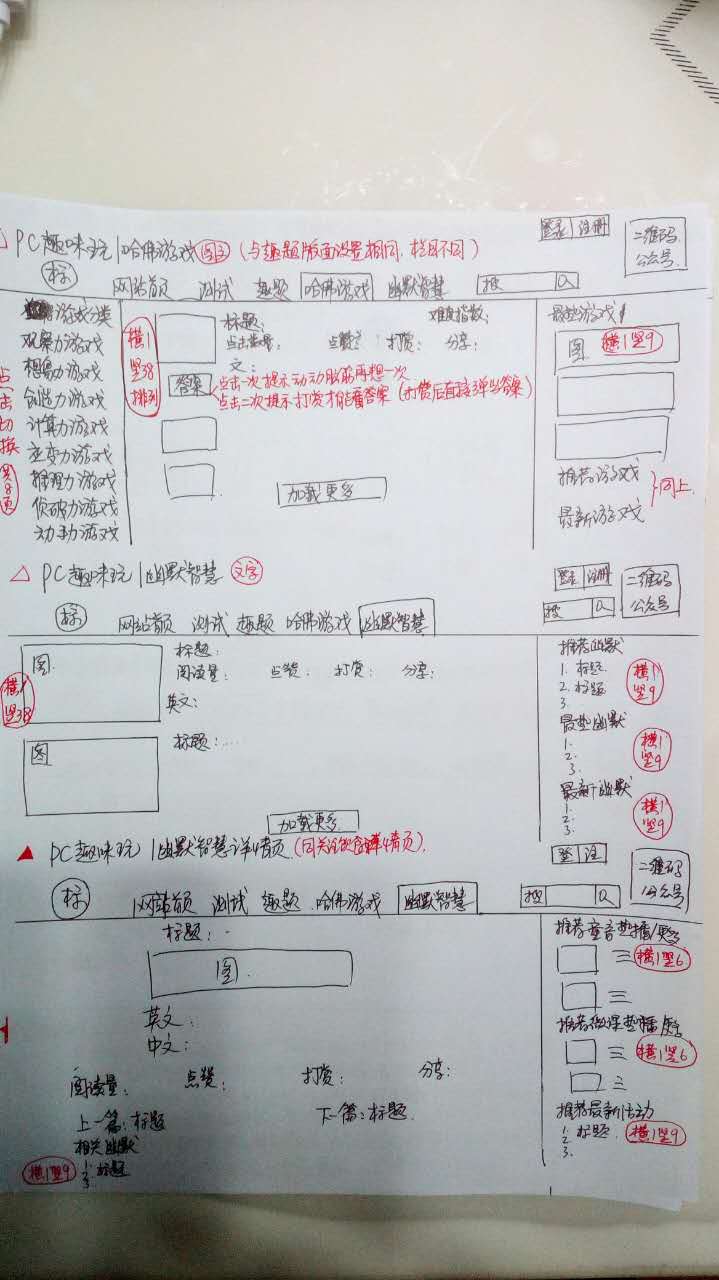 △ PC趣味玩|哈佛游戏 (与趣题版面设置相同,栏目不同)
登录 注册
二维码
公众号
标
网站首页 测试 趣题 哈佛游戏 幽默智慧
搜
游戏分类
观察力游戏
想象力游戏
创造力游戏
计算力游戏
应变力游戏
推理力游戏
侦破力游戏
动手力游戏
点击切换
共8页
横1
竖38
排列
标题: 难度指数:
点赞: 打赏: 分享:
文:
答案
点击一次提示动动脑筋再想一次
点击二次提示打赏才能看答案(打赏后直接弹出答案)
加载更多
最热游戏
图 横1竖9
推荐游戏
最新游戏
同上
△ PC趣味玩|幽默智慧 文字
登录 注册
二维码
公众号
标
网站首页 测试 趣题 哈佛游戏 幽默智慧
搜
横1
竖38
图
标题:
阅读量: 点赞: 打赏: 分享:
英文:
图
标题:...
加载更多
推荐幽默
1. 标题
2. 标题
3.
横1
竖9
最热幽默
1.
2.
3.
横1
竖9
最新幽默
1.
2.
3.
横1
竖9
▲ PC趣味玩|幽默智慧详情页
登 注
二维码
公众号
标
网站首页 测试 趣题 哈佛游戏 幽默智慧
搜
标题:
图
英文:
中文:
阅读量: 点赞: 打赏: 分享:
上一篇:标题 下一篇:标题
相关幽默
1 标题
2
3
横1竖9
横1竖6
横1竖6
推荐最新活动
1. 标题
2.
3.
横1竖9